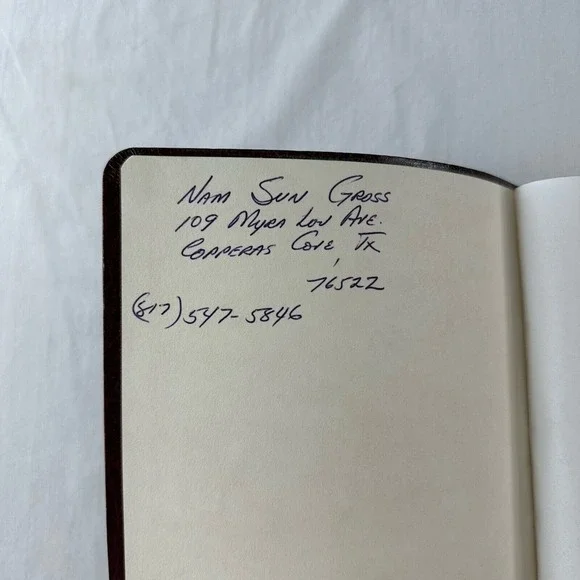 Nam Sun Gross
109 Myra Lou Ave.
Copperas Cove, TX
76522
(817) 547-5846